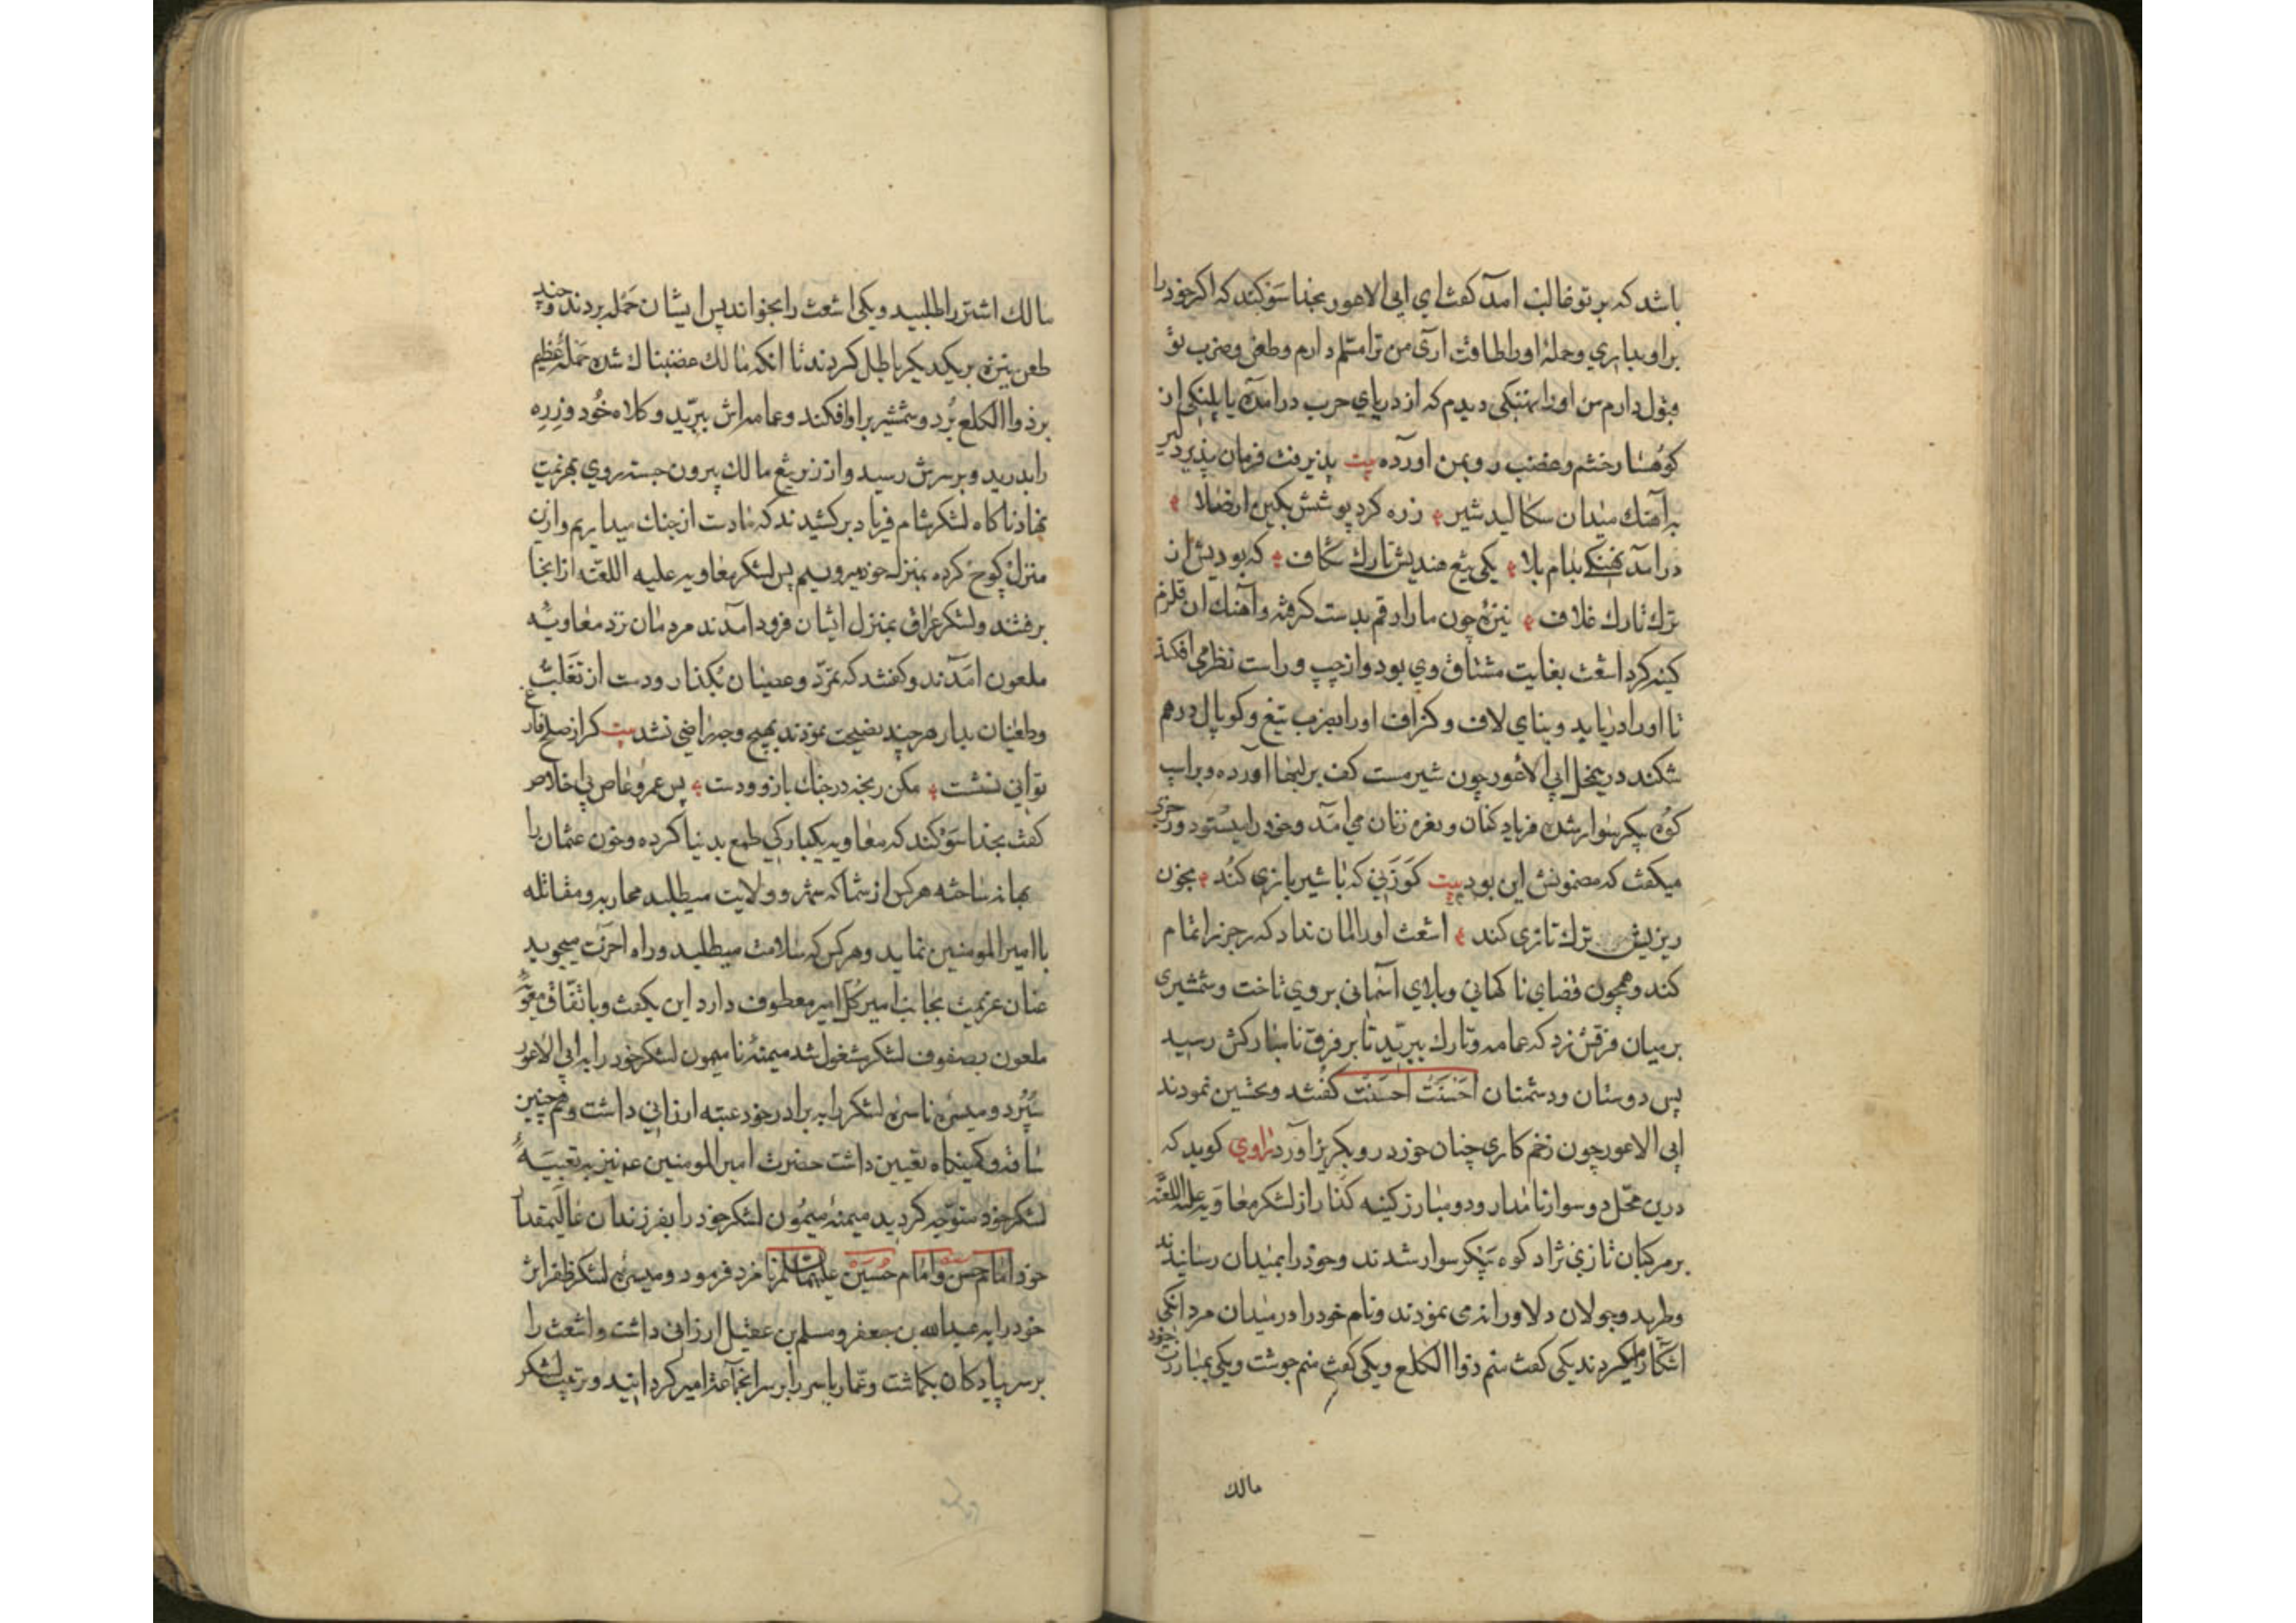 باشد که بر تو غالب آمد گفت ای ابی الاعور بخدا سوکند که اکر خود را
بر او بیاری و حملۀ او را طاقت آری من ترا مسلم دارم و طعن و ضرب تو
قبول دارم من او را نهنکی دیدم که از دریای حرب در آمده یا پلنکی از
کوهسار خشم و غضب رو بمن آورده بیت پذیرفت فرمان پذیر دلیر
به آهنك میدان سکالید شیر زره کرد پوشش بکین
در آمد نهنکی بدام بلا یکی تیغ هندیش تارك شکاف که بودیش از
ترك تارك غلاف نیزۀ چون مار ارقم بدست کرفته و آهنك ان قلزم
کینه کرد اشعث بغایت مشتاق وی بود و از چپ و راست نظر می افکند
تا او را دریابد و بنای لاف و کزاف او را بضرب تیغ و کوپال درهم
شکند درینحل ابی الاعور چون شیر مست کف بر لبها آورده و بر اسپ
کوه پیکر سوار شده فریاد کنان و نعره زنان می آمد و خود را میستود و رجزی
میکفت که مضمونش این بود بیت کوزنی که با شیر بازی کند بخون
ریزیش ترك تازی کند اشعث او را امان نداد که رجز را تمام
کند و همچون قضای ناکهانی و بلای آسمانی بر وی تاخت و شمشیری
بر میان فرقش زد که عمامه و تارك ببرید تا بر فرق نامبارکش رسید
پس دوستان و دشمنان احسنت احسنت کفتند و تحسین نمودند
ابی الاعور چون زخم کاری چنان خورد رو بکریز آورد راوی کوید که
درین محل دو سوار نامدار و دو مبارز کینه کذار از لشکر معاویه علیه اللعنه
بر مرکبان تازی نژاد کوه پیکر سوار شدند و خود را بمیدان رسانیدند
و طرید و جولان دلاورانه می نمودند و نام خود را در میدان مردانکی
اشکارا میکردند یکی کفت منم ذوا الکلع و یکی کفت منم جوشت و یکی بمبارزت خود
مالك
مالك اشتر را طلبید و یکی اشعث را بخواند پس ایشان حمله بردند و چند
طعن نیزه بر یکدیکر باطل کردند تا انکه مالك غضبناك شده حملۀ عظیم
بر ذوا الکلع برد و شمشیر بر او افکند و عمامه اش ببرید و کلاه خود و زره
را بدرید و بر سرش رسید و از زیر تیغ مالك بیرون جسته روی بهزیمت
نهاد ناکاه لشکر شام فریاد برکشیدند که ما دست از جنك میداریم و ازین
منزل کوچ کرده بمنزل خود میرویم پس لشکر معاویه علیه اللعنه از انجا
برفتند و لشکر عراق بمنزل ایشان فرود آمدند مردمان نزد معاویه
ملعون آمدند و کفتند که تمرد و عصیان بکذار و دست از تغلب
و طغیان بدار هر چند نصیحت نمودند بهیچ وجه راضی نشد بیت کر از صلح فارغ
توانی نشست مکن رنجه در جنك بازو و دست پس عمرو عاص بی اخلاص
کفت بخدا سوکند که معاویه یکبارکی طمع بدنیا کرده و خون عثمان را
بهانه ساخته هر کس از شما که شهر و ولایت میطلبد محاربه و مقاتله
با امیر المومنین نماید و هر کس که سلامت میطلبد و راه آخرت میجوید
عنان عزیمت بجانب امیر کل امیر معطوف دارد این بکفت و باتفاق معویه
ملعون بصفوف لشکر مشغول شد میمنۀ نامیمون لشکر خود را به ابی الاعور
سپرد و میسرۀ ناسرۀ لشکر را به برادر خود عتبه ارزانی داشت و همچنین
ساقه و کمینکاه تعیین داشت حضرت امیر المومنین ع نیز به تعبیۀ
لشکر خود متوجه کردید میمنۀ میمون لشکر خود را بفرزندان عالیمقدار
خود امام حسن و امام حسین علیهما السلام نامزد فرمود و میسرۀ لشکر ظفر اثر
خود را به عبدالله بن جعفر و مسلم بن عقیل ارزانی داشت و اشعث را
بر سر پیادکان بکماشت و عمار یاسر را بر سر انجماعة امیر کردانید و ترتیب لشکر